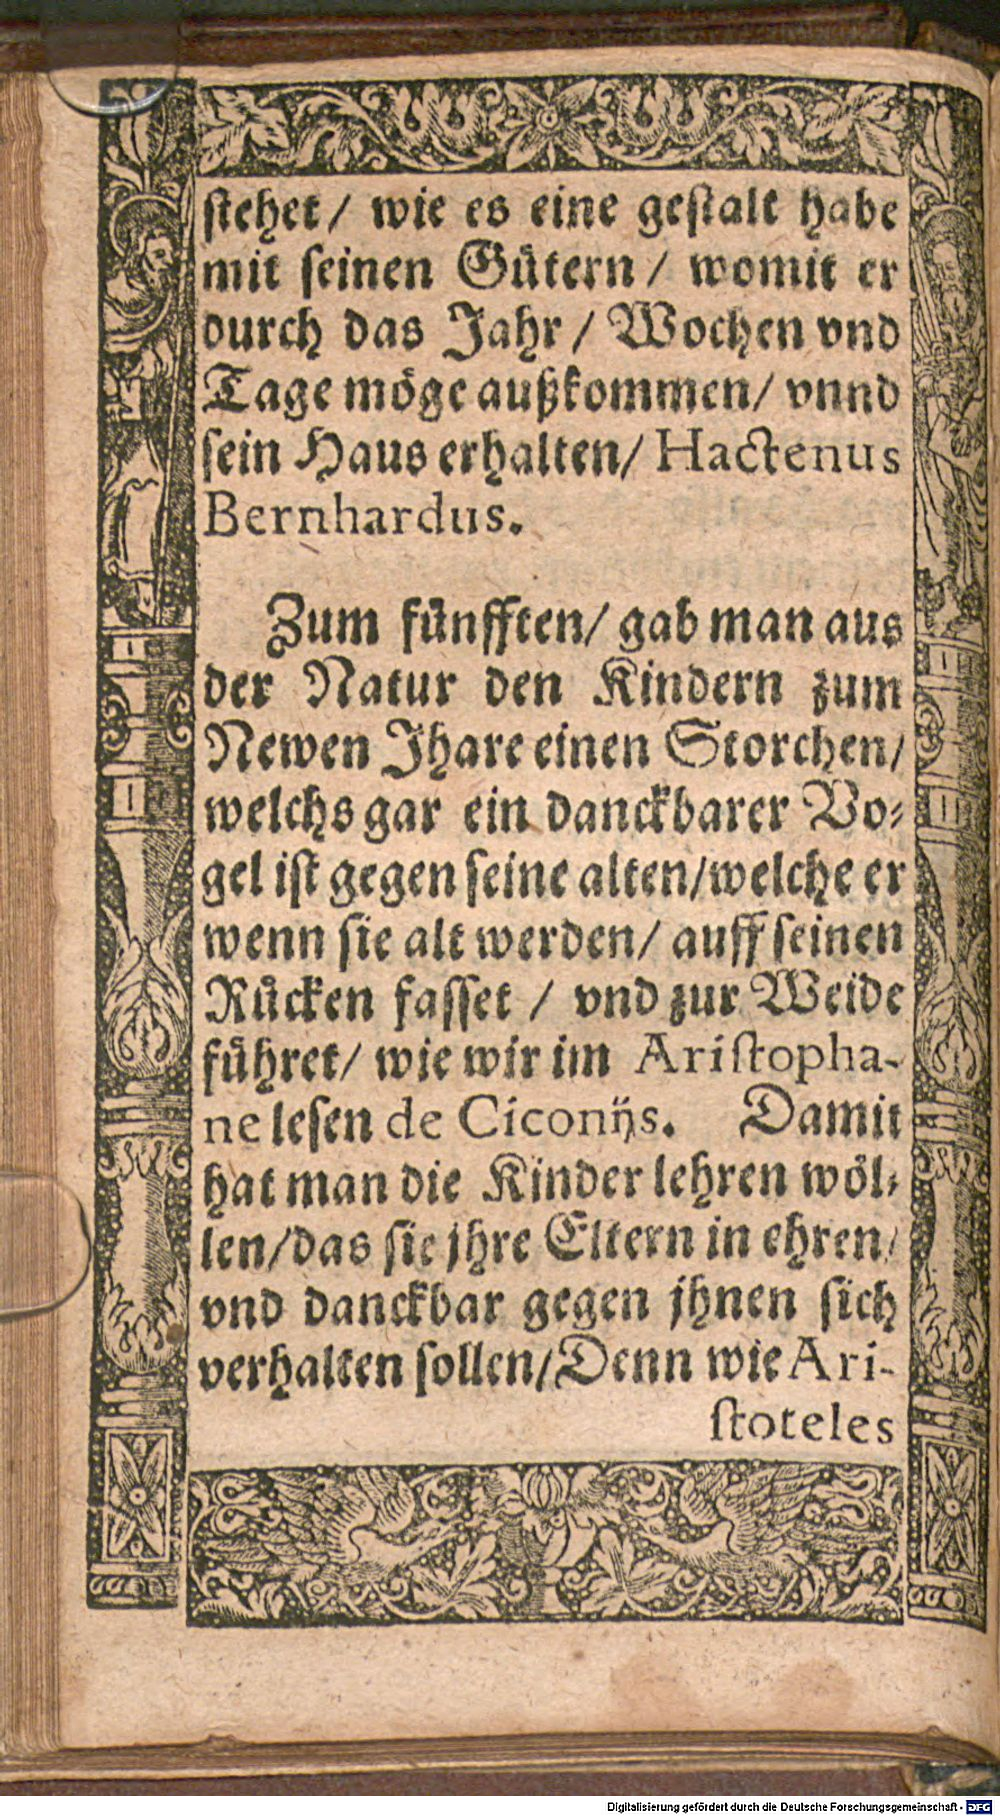 stehet/ wie es eine gestalt habe
mit seinen Gütern/ womit er
durch das Jahr/ Wochen vnd
Tage möge außkommen/ vnnd
sein Haus erhalten/ Hactenus
Bernhardus.
Zum fünfften/ gab man aus
der Natur den Kindern zum
Newen Jhare einen Storchen/
welchs gar ein danckbarer Vo-
gel ist gegen seine alten/welche er
wenn sie alt werden/ auff seinen
Rücken fasset / vnd zur Weide
führet/ wie wir im Aristopha-
ne lesen de Ciconijs. Damit
hat man die Kinder lehren wöl-
len/das sie jhre Eltern in ehren/
vnd danckbar gegen jhnen sich
verhalten sollen/Denn wie Ari-
stoteles
Digitalisierung gefördert durch die Deutsche Forschungsgemeinschaft - DFG